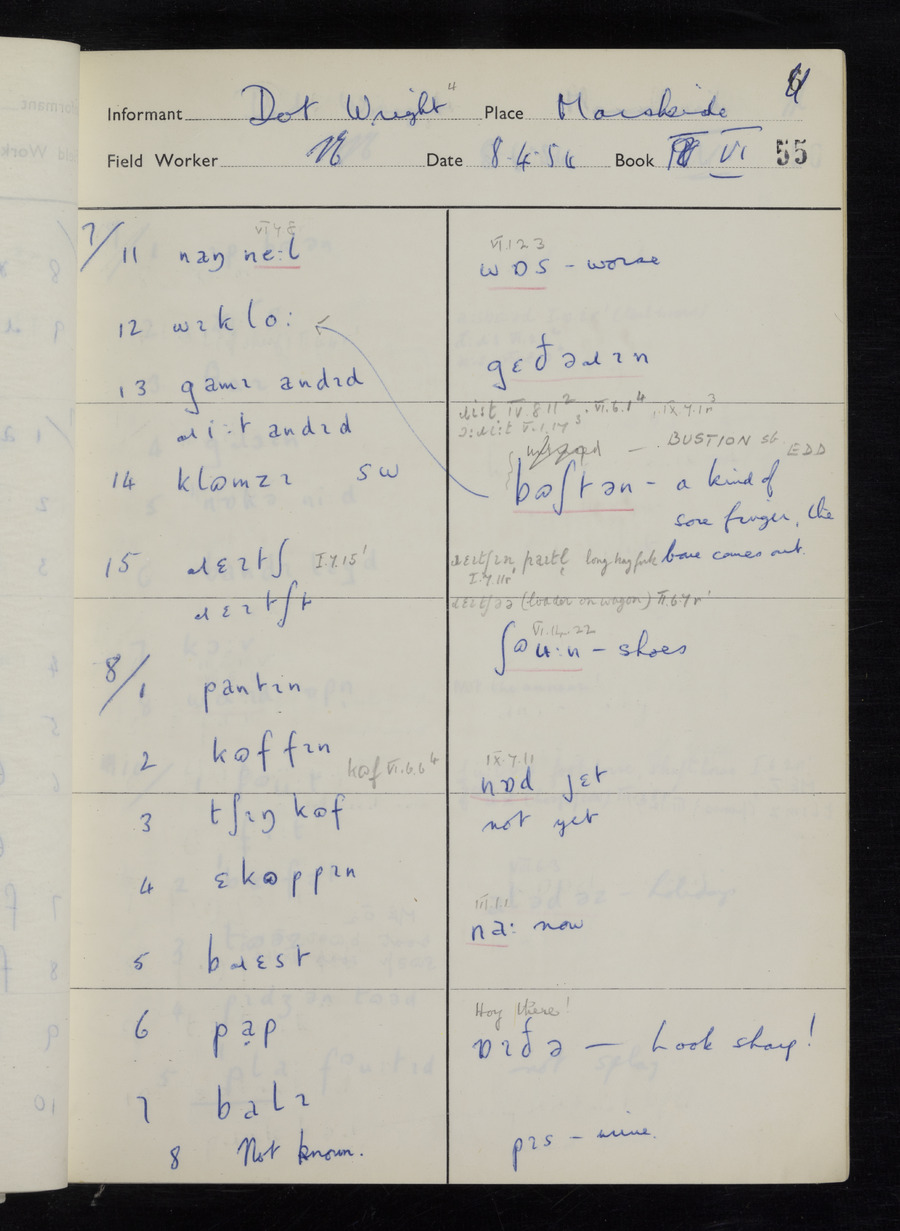 Informant Dot Wright 4 Place Marshside
Field Worker Date 8.4.54 Book VI 55
7/11 naŋ ne:l
12 wɪklo:
13 gamɪ andɪd
ɹi:t andɪd
14 klɷmzɪ sw
15 ɹɛɪtʃ I.7.15'
ɹɛɪtʃt
8/1 pantɪn
2 kɷffɪn kɷf VI.6.6⁴
3 tʃɪŋ kɷf
4 ɛkɷppɪn
5 bɹɛst
6 pa̤p
7 balɪ
8 Not known.
VI.12 3
wɒs – worse
gɛðəɹɪn
ɹist IV.8.11² , VI.6.1⁴ , IX.7.1r³
V.1.14³
— BUSTION sb EDD
bɷʃtən – a kind of
sore finger, the
bone comes out.
ɹɛɪtʃɪn paɪtl long hay fork
I.7.11r'
ɹɛɪtʃəə (loader on wagon) II.6.7r'
VI.14.22
ʃɷu:n – shoes
IX.7.11
nɒd jɛt
not yet
III.1.1
na: now
Hoy there!
ɒɪðə — Look sharp!
pɪs – urine.